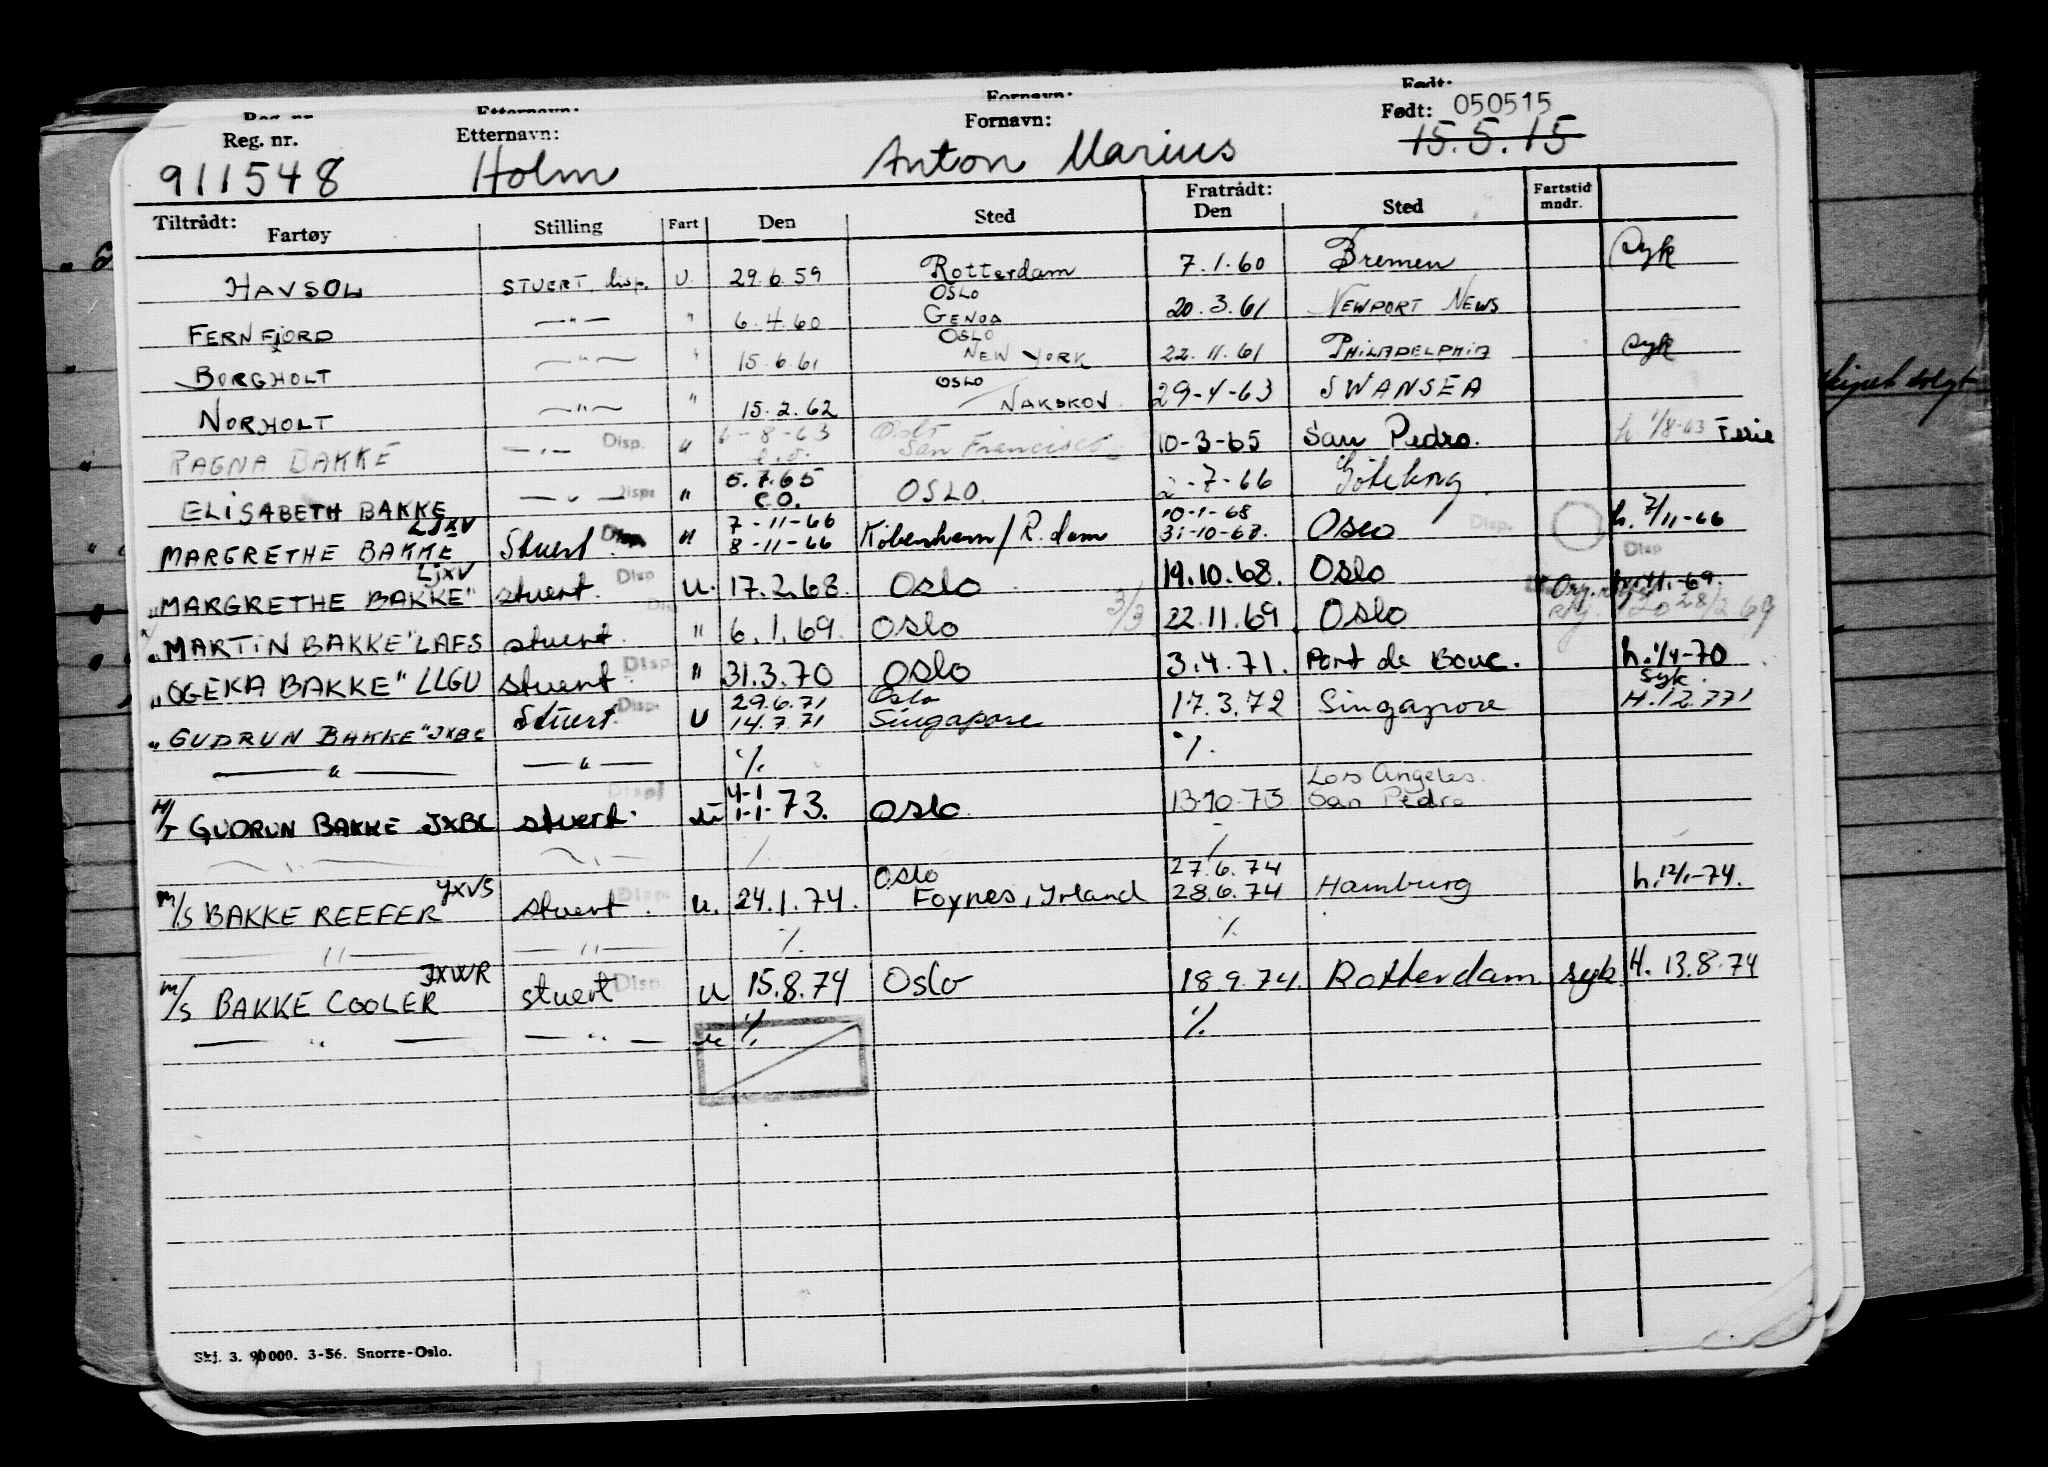 Reg. nr. Etternavn: Fornavn: Født: 050515
911548 Holm Anton Marius 15.5.15
Tiltrådt: Fratrådt:
Fartøy Stilling Fart Den Sted Den Sted Fartstid mndr.
HAVSOL STUERT, disp. U. 29.6.59 Rotterdam 7.1.60 Bremen syk
OSLO
FERNFJORD —"— " 6.4.60 GENOA 20.3.61 NEWPORT NEWS
OSLO
BORGHOLT —"— " 15.6.61 NEW YORK 22.11.61 PHILADELPHIA syk
OSLO
NORHOLT —"— " 15.2.62 / NAKSKOV 29-4-63 SWANSEA
RAGNA BAKKE —"— Disp. " 6-8-63 Oslo San Francisco 10-3-65 San Pedro. h. 1/8-63 Ferie
ELISABETH BAKKE —"— Disp. " 5.7.65 e.o. OSLO. 2-7-66 Göteborg.
LJXV 7-11-66 10-1-68
MARGRETHE BAKKE Stuert Disp. " 8-11-66 Köbenhavn/R.dam 31-10-68. Oslo Disp. h. 7/11-66
LJXV Disp
"MARGRETHE BAKKE" stuert. Disp u. 17.2.68 Oslo 19.10.68. Oslo
"MARTIN BAKKE" LAFS stuert. Dis " 6.1.69. Oslo 3/3 22.11.69 Oslo 28/2 69
"OGEKA BAKKE" LLGU stuert Disp " 31.3.70 Oslo 3.4.71. Port de Bouc. h. 1/4-70
29.6.71 Oslo syk.
"GUDRUN BAKKE" JXBC Stuert. Disp. U 14.7.71 Singapore 17.3.72 Singapore H.12.771
—"— —"— ·/. ·/.
4-1 Los Angeles.
M/T GUDRUN BAKKE JXBC stuert. Disp u 1-1-73. Oslo 13.10.73 San Pedro
—"— —"— /. /.
JXVS Oslo 27.6.74
m/s BAKKE REEFER stuert. Disp. u. 24.1.74. Foynes, Irland 28.6.74 Hamburg h. 12/1-74.
—"— —"— ·/. ·/.
JXWR
m/s BAKKE COOLER stuert Disp u 15.8.74 Oslo 18.9.74. Rotterdam syk H. 13.8.74
—"— —"— u ·/. ·/.
Skj. 3. 90000. 3-56. Snorre-Oslo.